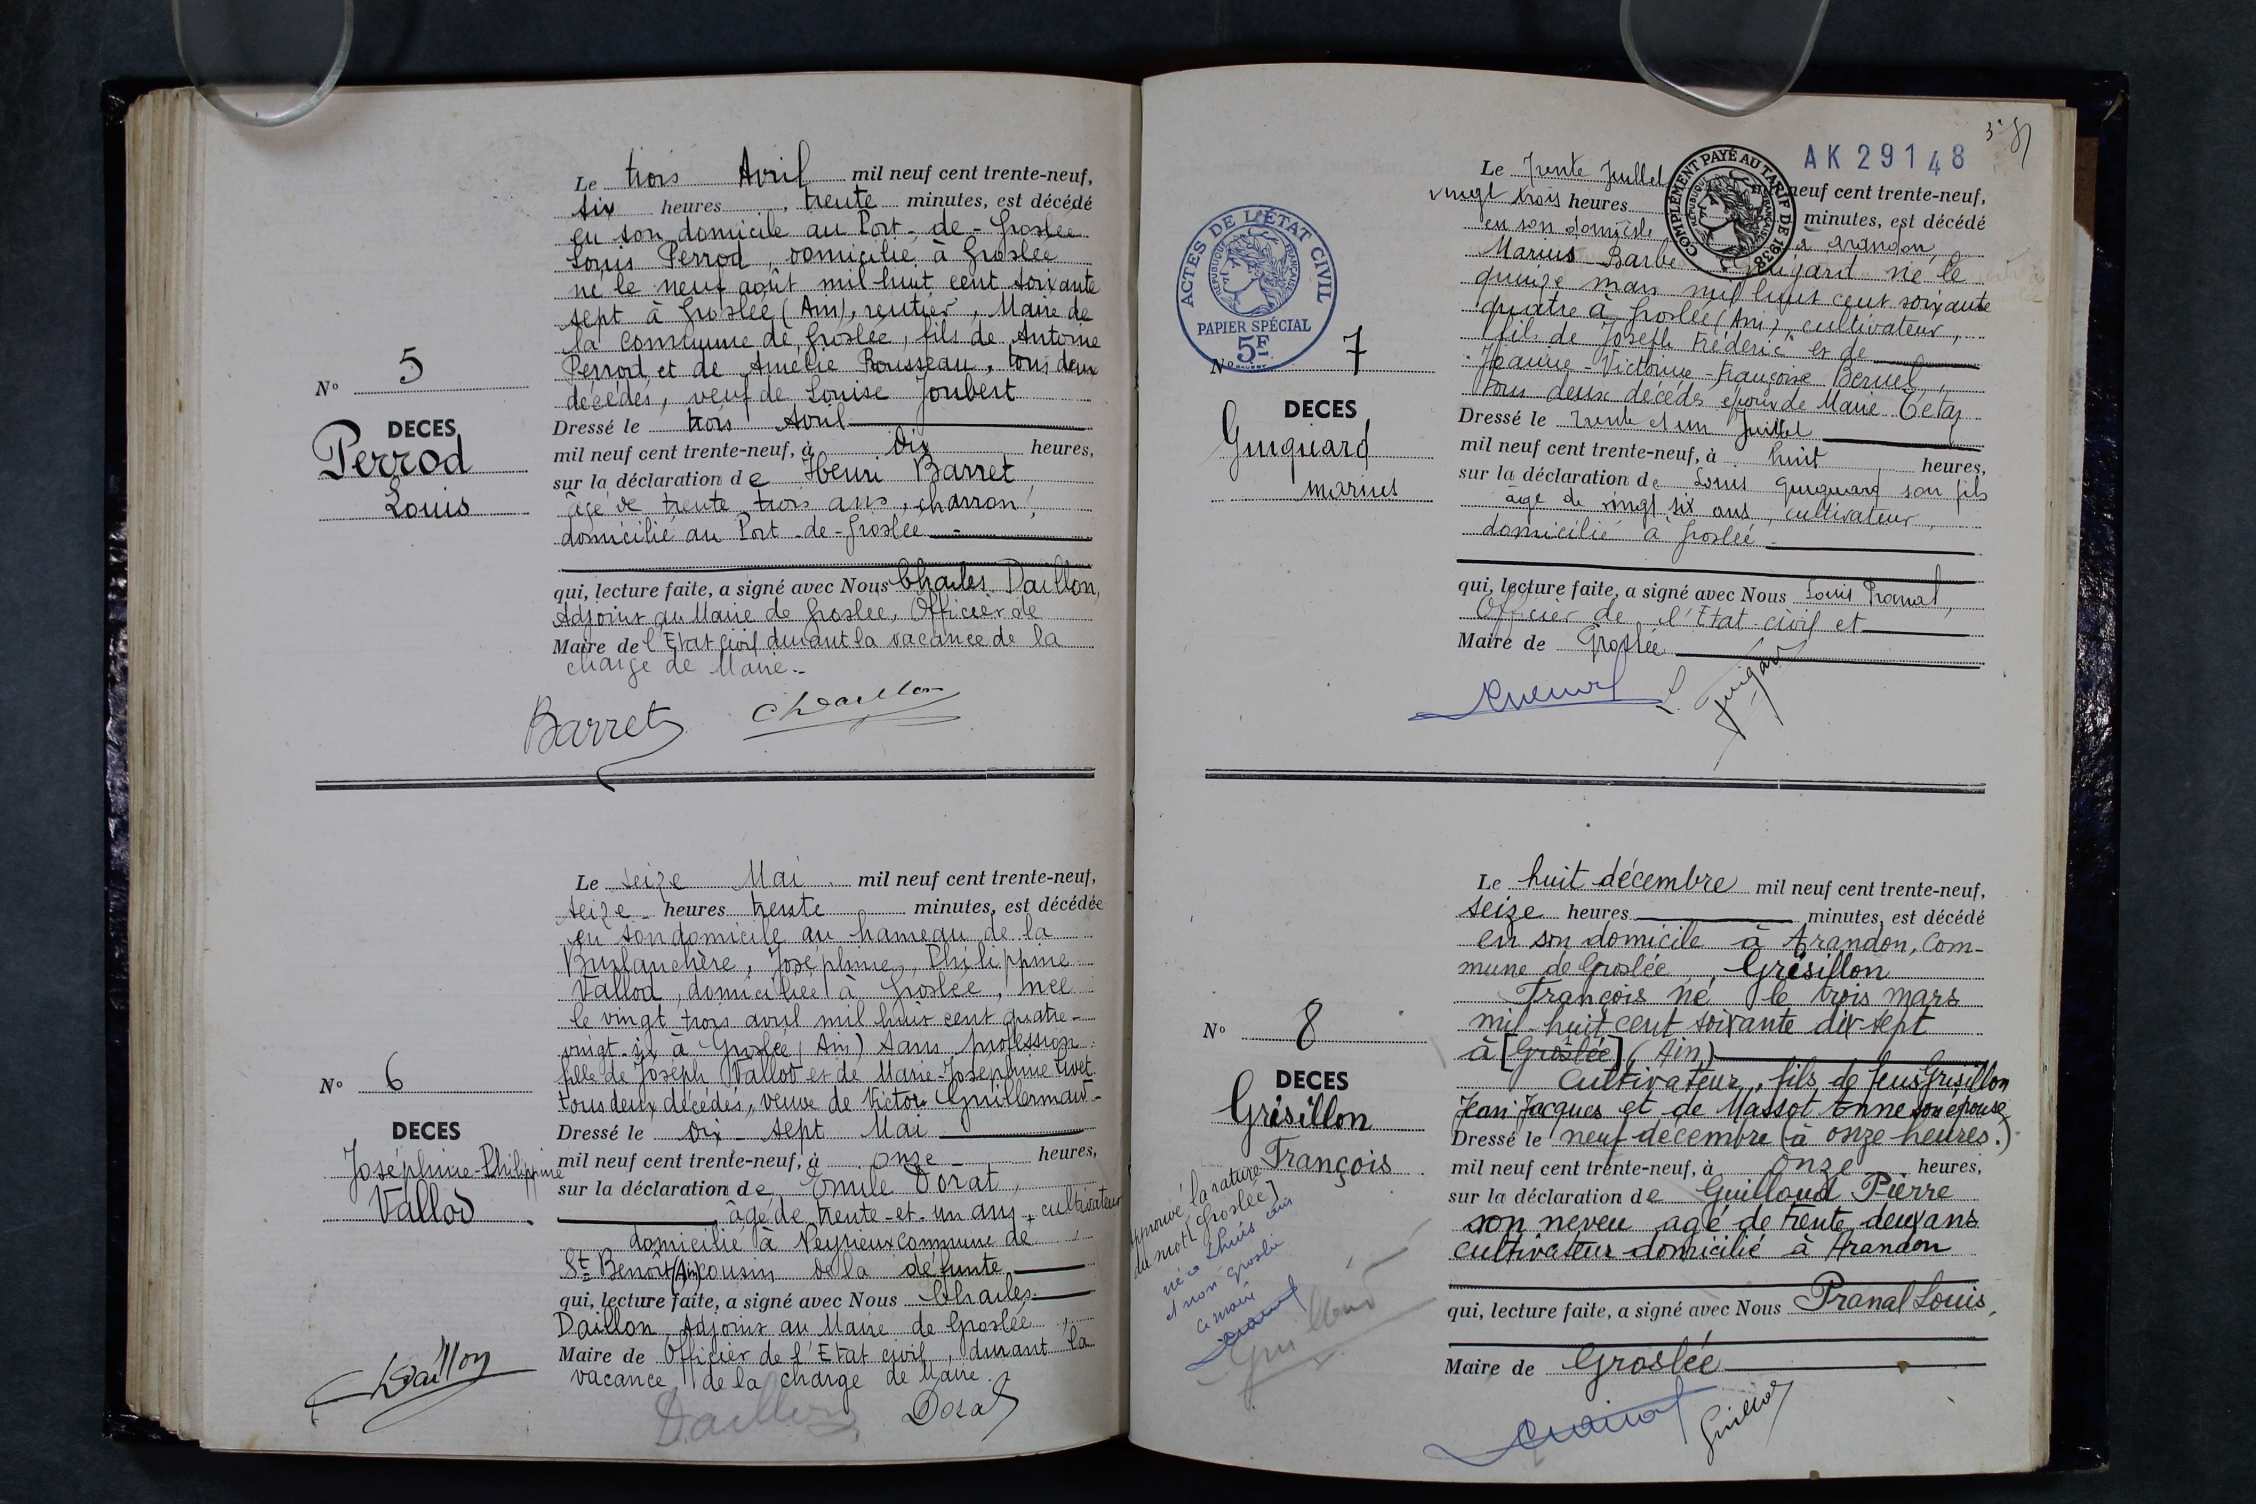 Le trois Avril mil neuf cent trente-neuf,
six heures, trente minutes, est décédé
en son domicile au Port-de-Groslée
Louis Perrod, domicilié à Groslée
né le neuf août mil huit cent soixante
sept à Groslée (Ain), rentier, Maire de
la commune de Groslée, fils de Antoine
Perrod et de Amélie Rousseau, tous deux
décédés, veuf de Louise Joubert
N° 5
DECES
Perrod
Louis
Dressé le trois Avril
mil neuf cent trente-neuf, à dix heures,
sur la déclaration de Henri Barret
âgé de trente trois ans, charron,
domicilié au Port-de-Groslée
qui, lecture faite, a signé avec Nous Charles Daillon,
Adjoint au Maire de Groslée, Officier de
Maire de l'Etat civil durant la vacance de la
charge de Maire.
Barret ChDaillon
Le seize Mai mil neuf cent trente-neuf,
seize heures trente minutes, est décédée
en son domicile au hameau de la
Burlanchère, Joséphine, Philippine
Vallod, domiciliée à Groslée, née
le vingt trois avril mil huit cent quatre-
vingt-six à Groslée (Ain) sans profession
fille de Joseph Vallod et de Marie-Joséphine Livet
tous deux décédés, veuve de Victor Guillermard
N° 6
DECES
Joséphine-Philippine
Vallod
Dressé le dix-sept Mai
mil neuf cent trente-neuf, à onze heures,
sur la déclaration de Emile Dorat,
âgé de trente-et-un ans, cultivateur
domicilié à Veyrieux commune de
St Benoît (Ain) cousin de la défunte
qui, lecture faite, a signé avec Nous Charles
Daillon, Adjoint au Maire de Groslée,
Maire de Officier de l'Etat civil, durant la
vacance de la charge de Maire.
ChDaillon Daillon Dorat
AK 29148
Le trente Juillet neuf cent trente-neuf,
vingt trois heures minutes, est décédé
en son domicile à Arandon,
Marius Barbe Guigard né le
quinze mars mil huit cent soixante
quatre à Groslée (Ain), cultivateur,
fils de Joseph Frédéric et de
Jeanne-Victorine-Françoise Bernel,
tous deux décédés époux de Marie Tétaz
COMPLÉMENT PAYÉ AU TARIF DE 1938
RÉPUBLIQUE FRANÇAISE
ACTES DE L'ÉTAT CIVIL
RÉPUBLIQUE FRANÇAISE
PAPIER SPÉCIAL
5F
N° 7
DECES
Guiguard
Marius
Dressé le trente et un Juillet
mil neuf cent trente-neuf, à huit heures,
sur la déclaration de Louis Guiguard son fils
âgé de vingt six ans, cultivateur,
domicilié à Groslée
qui, lecture faite, a signé avec Nous Louis Pranal,
Officier de l'Etat-civil et
Maire de Groslée
Pranal L Guigard
Le huit décembre mil neuf cent trente-neuf,
seize heures minutes, est décédé
en son domicile à Arandon, Com-
mune de Groslée, Grésillon
François né le trois mars
mil huit cent soixante dix sept
à [Groslée] (Ain)
cultivateur, fils de feus Grésillon
Jean Jacques et de Massot Anne son épouse
N° 8
DECES
Grésillon
François
Dressé le neuf décembre (à onze heures.)
mil neuf cent trente-neuf, à onze heures,
sur la déclaration de Guilloud Pierre
son neveu agé de trente deux ans
cultivateur domicilié à Arandon
Approuvé la rature
du mot [Groslée]
né à Lhuis
et non Groslée
Pranal
Guilloud
qui, lecture faite, a signé avec Nous Pranal Louis,
Maire de Groslée
Pranal Guilloud